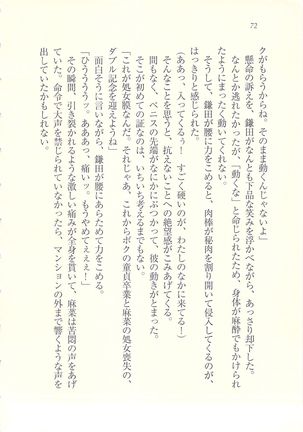 72
クがもらうからね。そのまま動くんじゃないよ」
懸命の訴えを、鎌田がなんとも下品な笑みを浮かべながら、あっさり却下した。
なんとか逃れたかったが、「動くな」と命じられたため、身体が麻酔でもかけられ
たようにまったく動いてくれない。
そうして、鎌田が腰に力をこめると、肉棒が秘肉を割り開いて侵入してくるのが
はっきりと感じられた。
(ああっ、入ってくるぅ！　すごく硬いのが、わたしのなかに来てるぅ！)
そんなことを思うと、抗えないことへの絶望感がこみあげてくる。
間もなく、ペニスの先端がなにかにぶつかって、彼の動きがとまった。
そこが初めての証なのは、いちいち考えるまでもない。
「これが処女膜なんだ。それじゃあ、これからボクの童貞卒業と麻菜の処女喪失の、
ダブル記念を迎えようね」
面白そうに言いながら、鎌田が腰にあらためて力をこめる。
「ひうううっッ。あああっ、痛いッ。もうやめてぇぇぇ！」
その瞬間、引き裂かれるような激しい痛みが全身を貫いて、麻菜は苦悶の声をあげ
ていた。命令で大声を禁じられていなかったら、マンションの外まで響くような声を
出していたかもしれない。